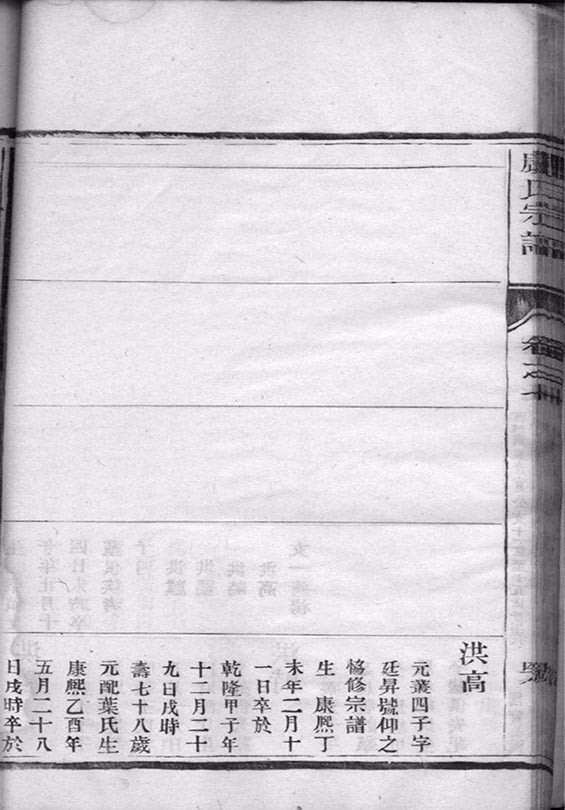 氏宗譜
卷之十
洪高
元叢四子字
廷昇號仰之
恊修宗譜
生 康熙丁
未年二月十
一日卒於
乾隆甲子年
十二月二十
九日戌時
壽七十八歲
元配葉氏生
康熙乙酉年
五月二十八
日戌時卒於